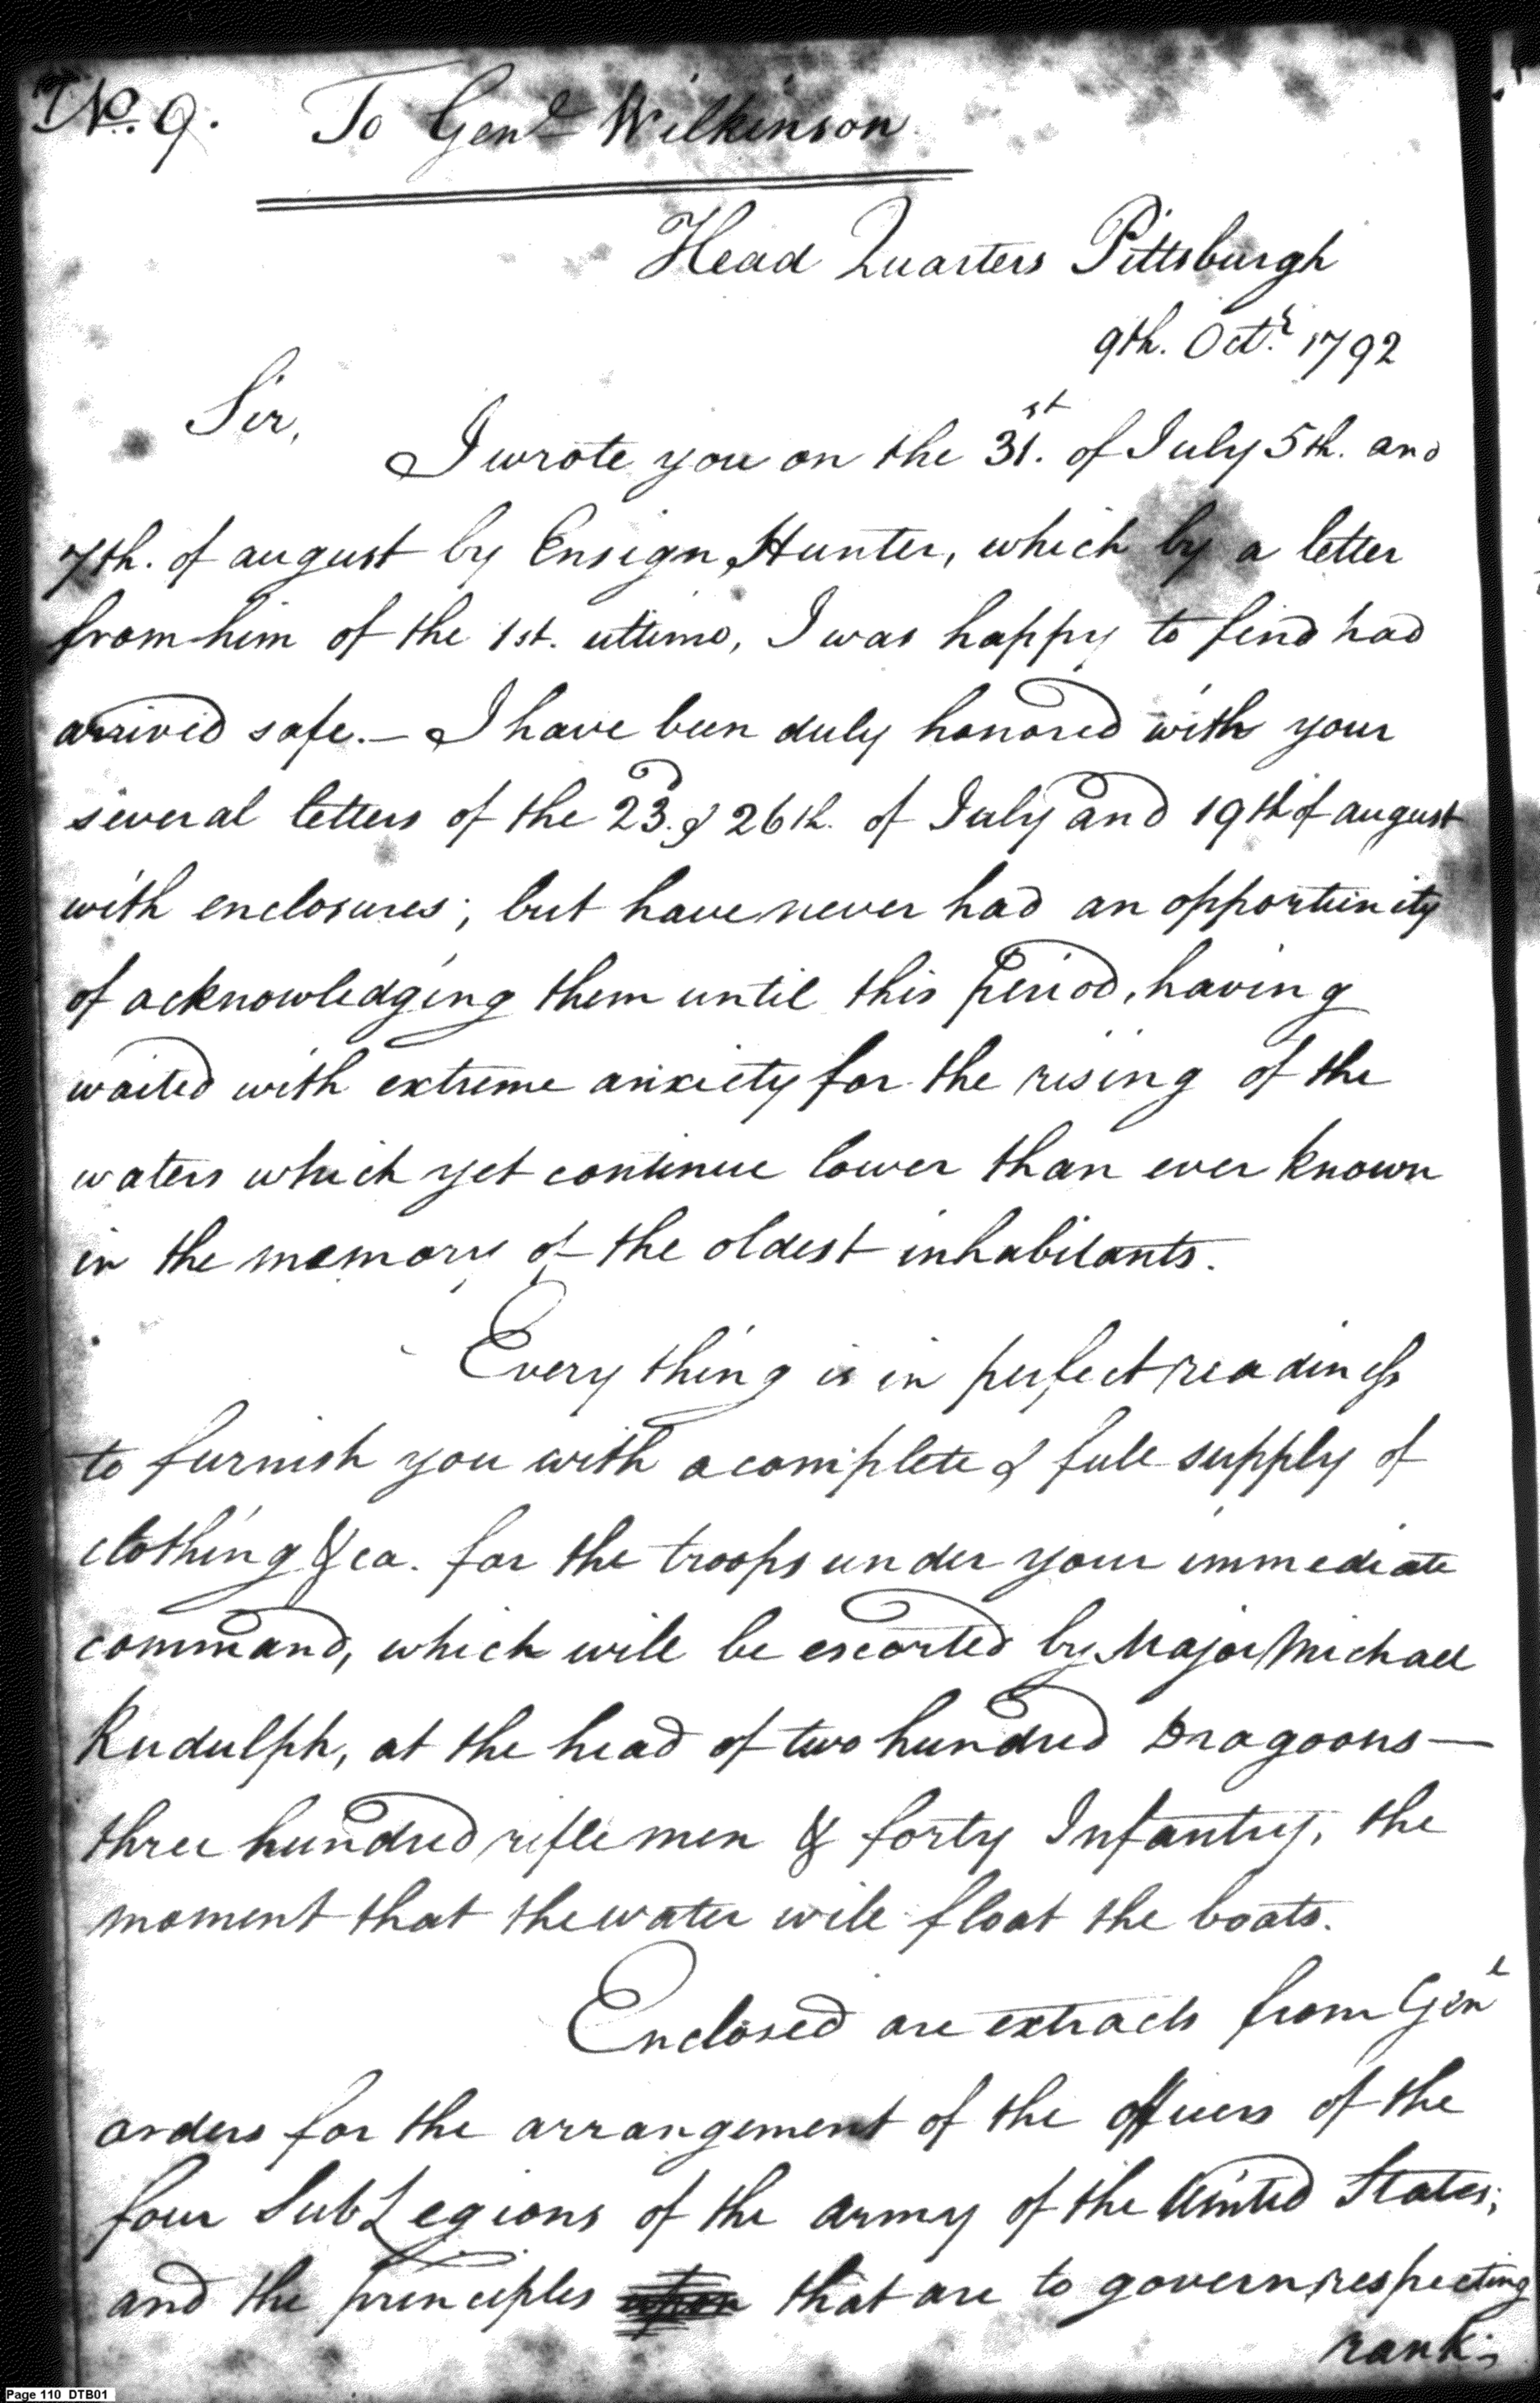 No. 9. To Genl Wilkinson
Head Quarters Pittsburgh
9th. Octr. 1792
Sir,
I wrote you on the 31st. of July 5th. and
7th. of august by Ensign Hunter, which by a letter
from him of the 1st. ultimo, I was happy to find had
arrived safe. — I have been duly honored with your
several letters of the 23d. & 26th. of July and 19th of august
with enclosures; but have never had an opportunity
of acknowledging them until this period, having
waited with extreme anxiety for the rising of the
waters which yet continue lower than ever known
in the memory of the oldest inhabitants.
Every thing is in perfect readiness
to furnish you with a complete & full supply of
clothing &ca. for the troops under your immediate
command, which will be escorted by Major Michael
Rudulph, at the head of two hundred Dragoons —
three hundred riflemen & forty Infantry, the
moment that the water will float the boats.
Enclosed are extracts from Genl
orders for the arrangement of the officers of the
four Sub Legions of the army of the United States;
and the principles that are to govern respecting
rank;
Page 110 DTB01